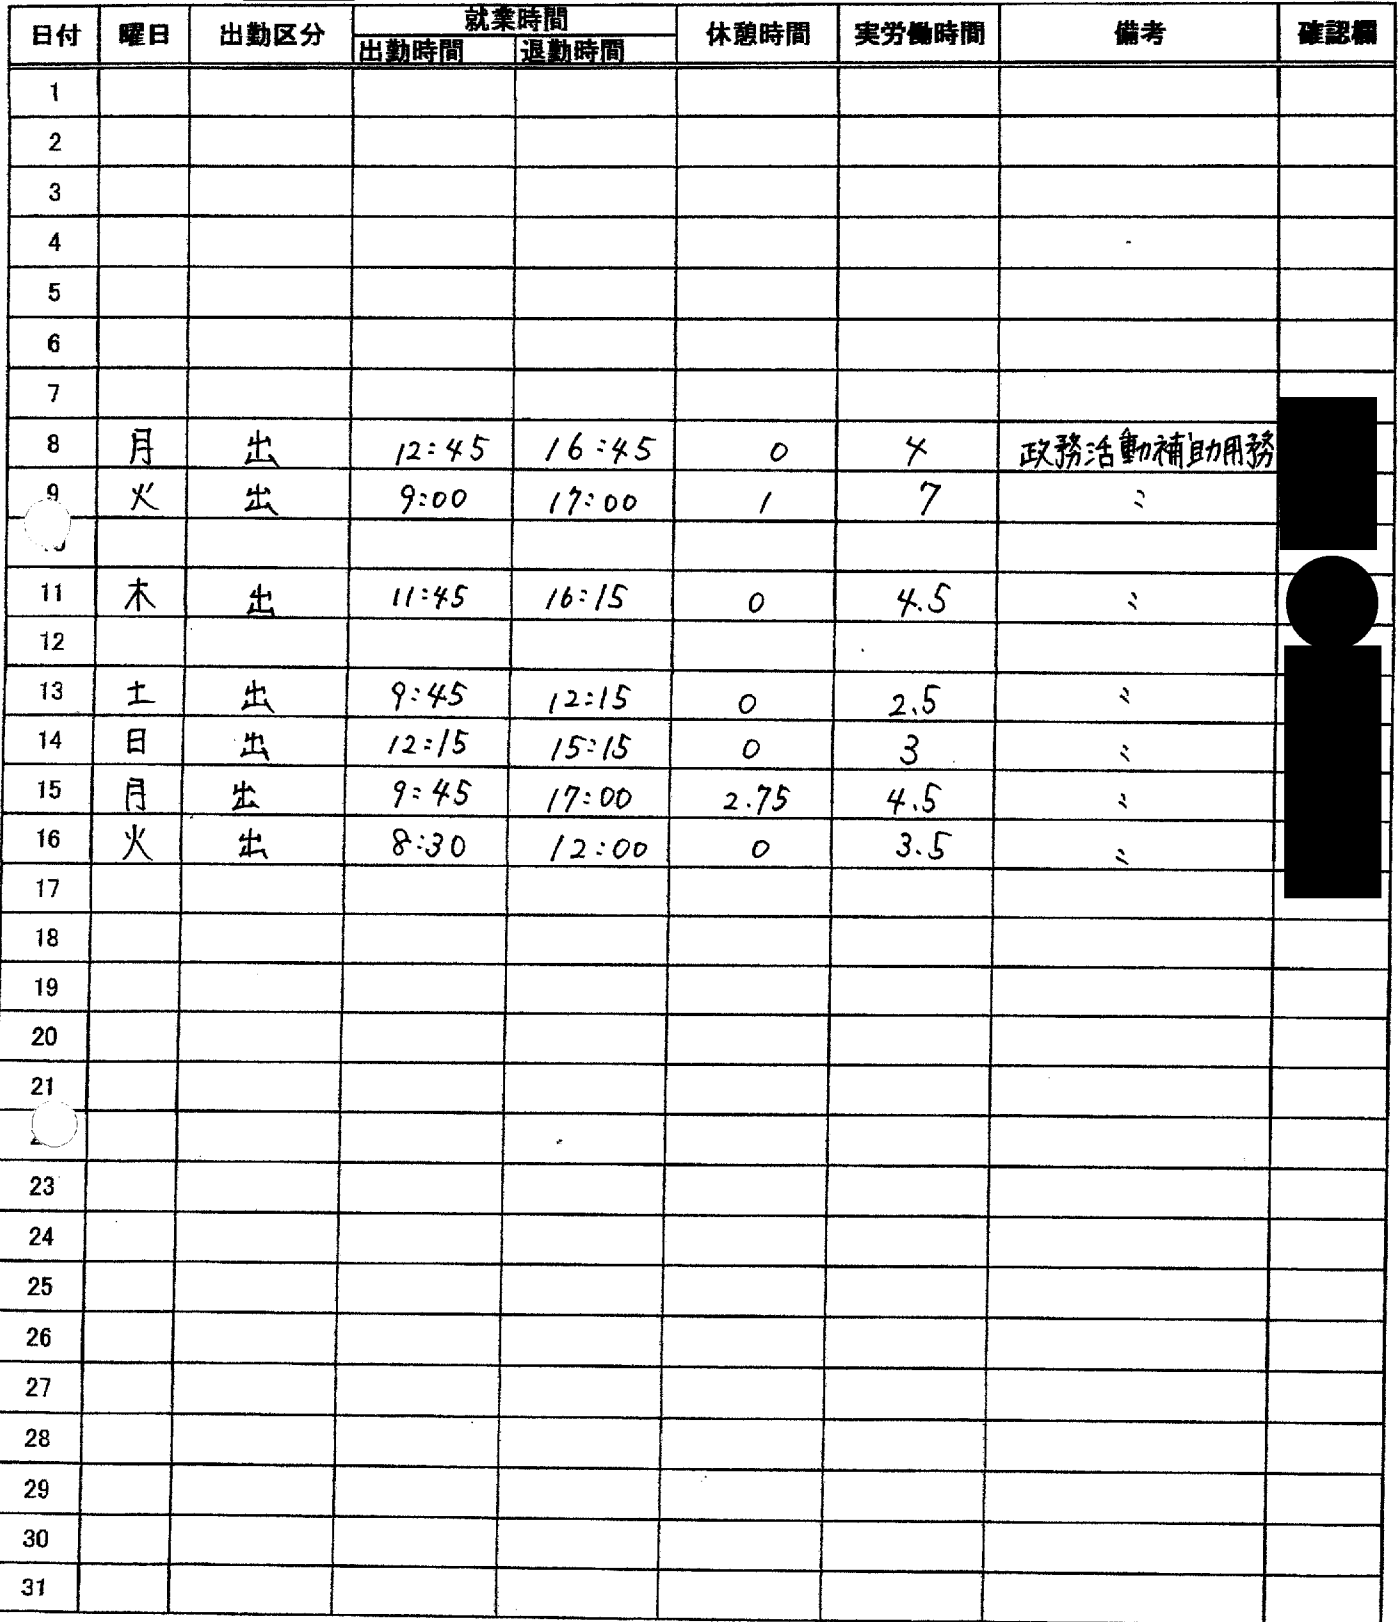 日付 曜日 出勤区分 就業時間 休憩時間 実労働時間 備考 確認欄
出勤時間 退勤時間
1
2
3
4
5
6
7
8 月 出 12:45 16:45 0 4 政務活動補助用務
9 火 出 9:00 17:00 1 7 〃
11 木 出 11:45 16:15 0 4.5 〃
12
13 土 出 9:45 12:15 0 2.5 〃
14 日 出 12:15 15:15 0 3 〃
15 月 出 9:45 17:00 2.75 4.5 〃
16 火 出 8:30 12:00 0 3.5 〃
17
18
19
20
21
23
24
25
26
27
28
29
30
31